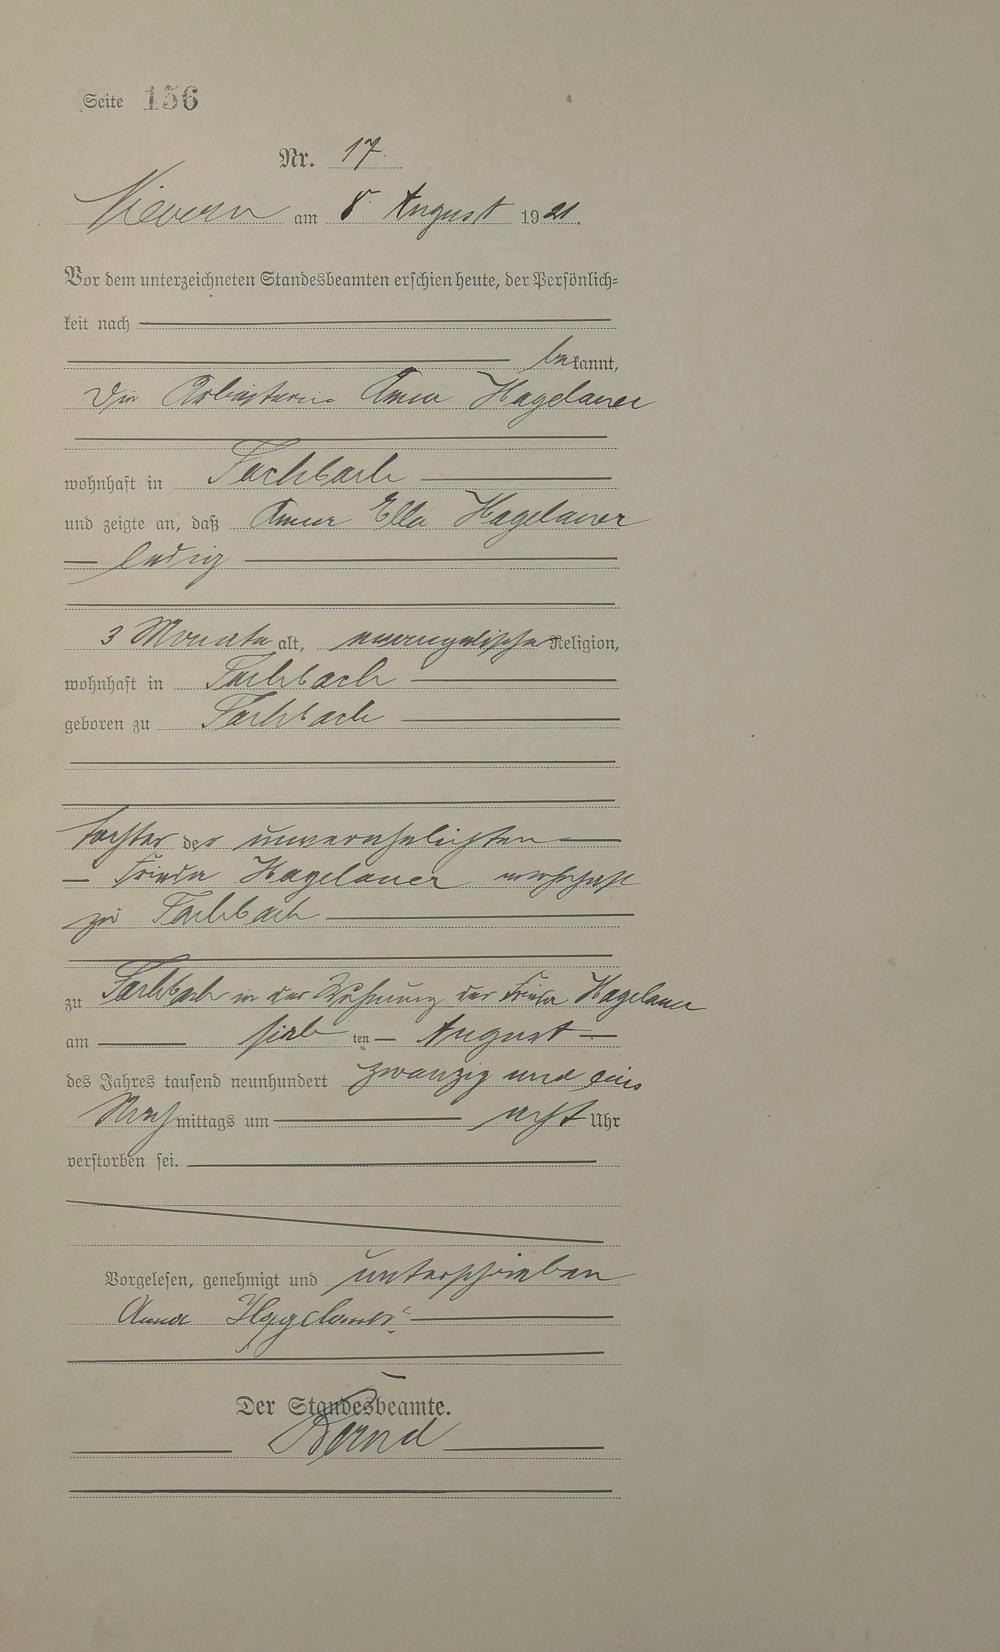 Seite 156
Nr. 17.
Nievern am 8. August 1921.
Vor dem unterzeichneten Standesbeamten erschien heute, der Persönlich-
keit nach
bekannt,
die Arbeiterin Anna Hagelauer
wohnhaft in Fachbach
und zeigte an, daß Anna Ella Hagelauer
ledig
3 Monate alt, evangelische Religion,
wohnhaft in Fachbach
geboren zu Fachbach
Tochter der unverehelichten
Frieda Hagelauer wohnhaft
zu Fachbach
zu Fachbach in der Wohnung der Frieda Hagelauer
am sieb ten August
des Jahres tausend neunhundert zwanzig und eins
Nachmittags um acht Uhr
verstorben sei.
Vorgelesen, genehmigt und unterschrieben
Anna Hagelauer
Der Standesbeamte.